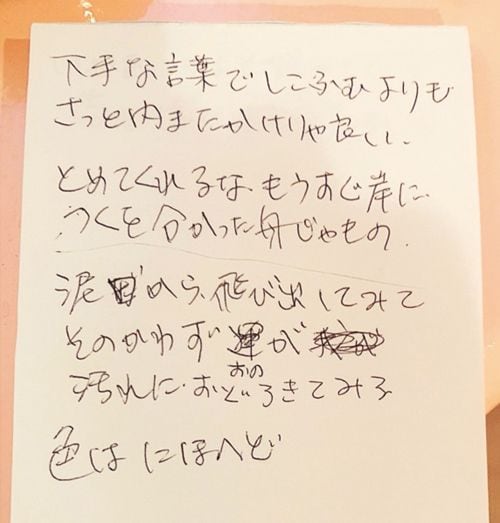 下手な言葉でしころむよりも
さっと内またかけりゃ良い、
とめてくれるな、もうすぐ岸に
つくを分かった舟じゃもの、
泥から飛び出してみて
そのかわず が
おの
汚れに おどろきてみる
色はにほへど